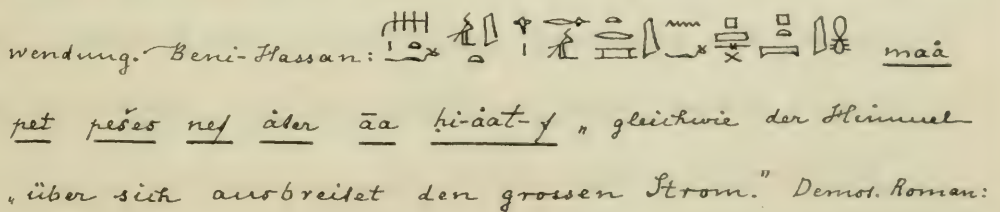 wendung. Beni-Hassan: maȧ
pet pešes nef ȧter āa ḥi-ȧat-f „gleichwie der Himmel
„über sich ausbreitet den grossen Strom." Demot. Roman: